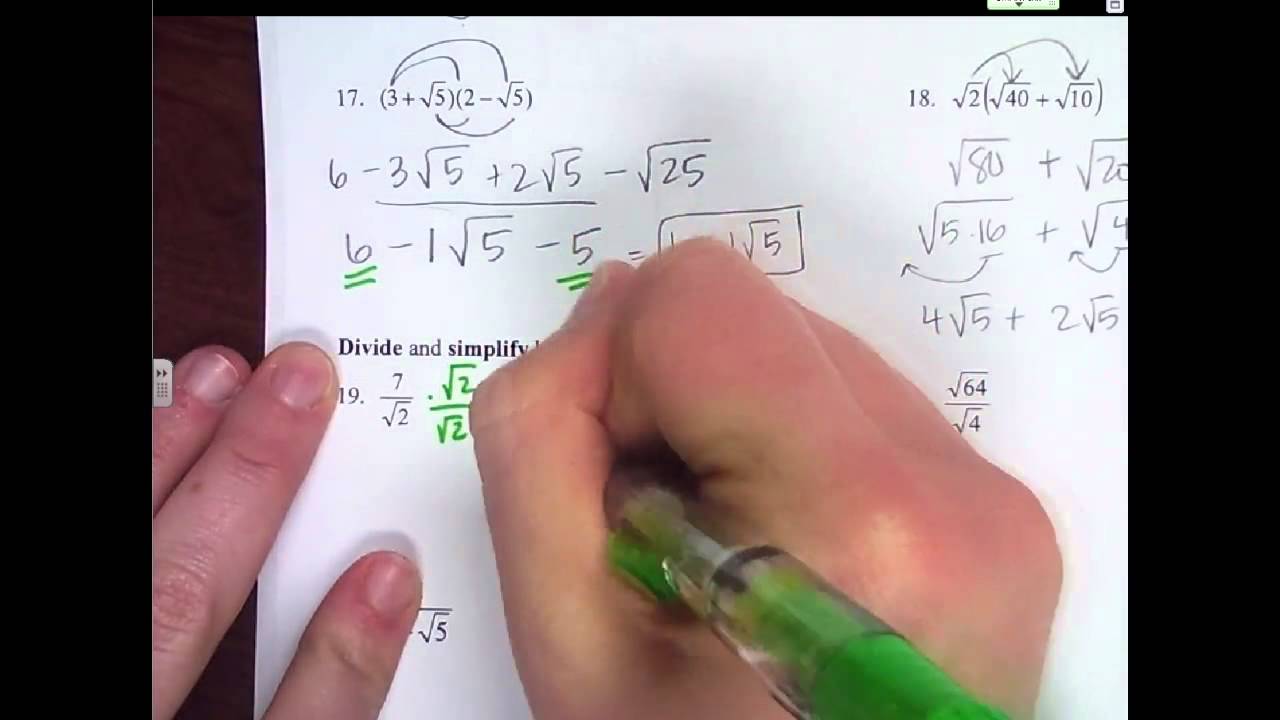 17. (3 + √5)(2 − √5)
6 − 3√5 + 2√5 − √25
6 − 1√5 − 5 = 1√5
18. √2(√40 + √10)
√80 + √20
√5·16 + √4
4√5 + 2√5
Divide and simplify
19. 7/√2 · √2/√2
√64/√4
√5